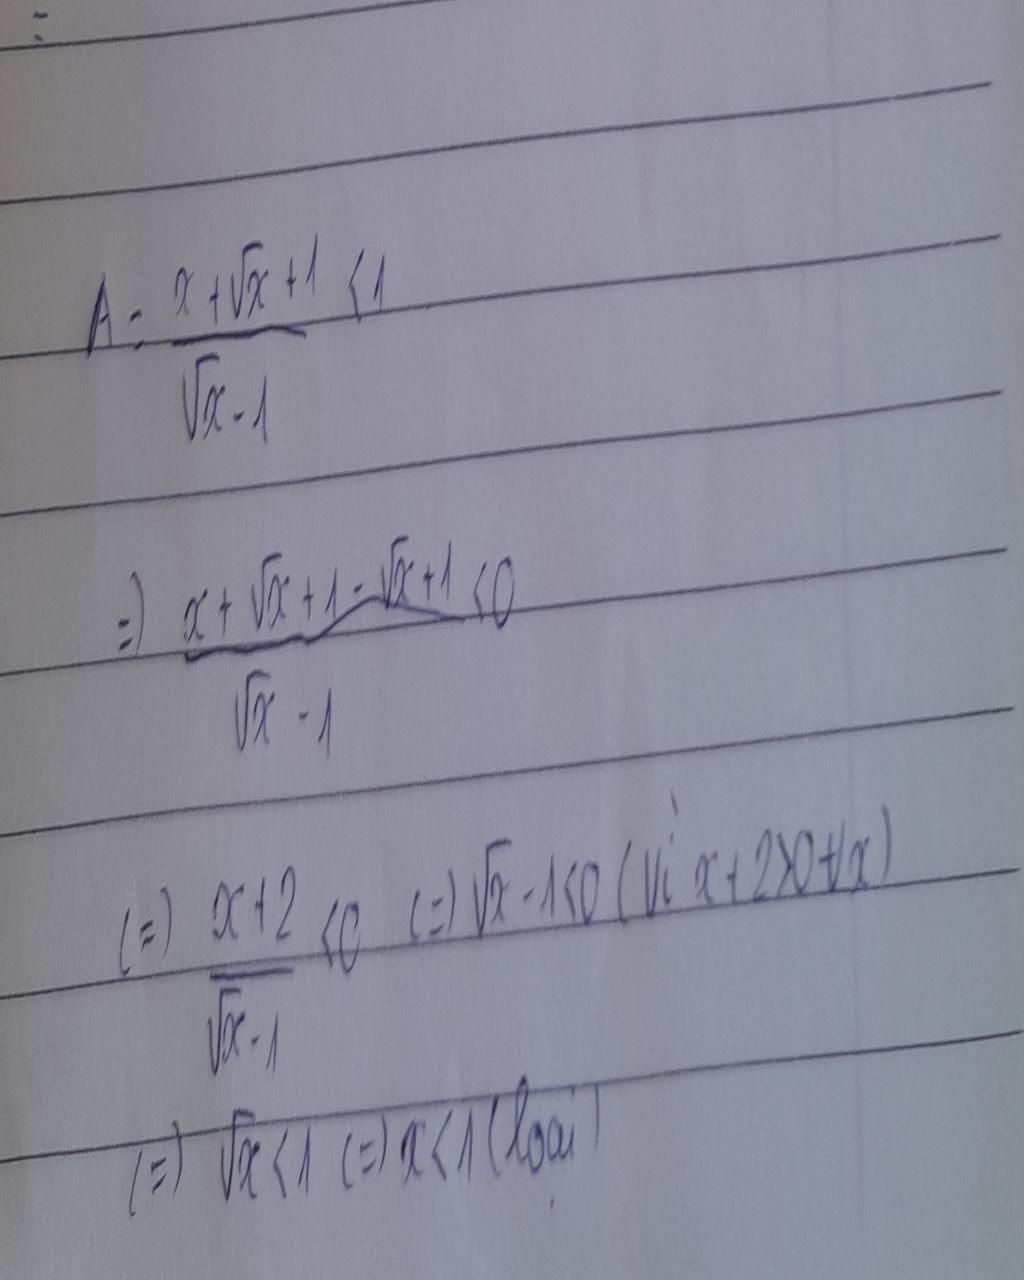 A = (x + √x + 1)/(√x - 1) < 1
=) (x + √x + 1 - √x + 1)/(√x - 1) < 0
(=) (x + 2)/(√x - 1) < 0 (=) √x - 1 < 0 (Vì x + 2 > 0 ∀x)
(=) √x < 1 (=) x < 1 (loại)